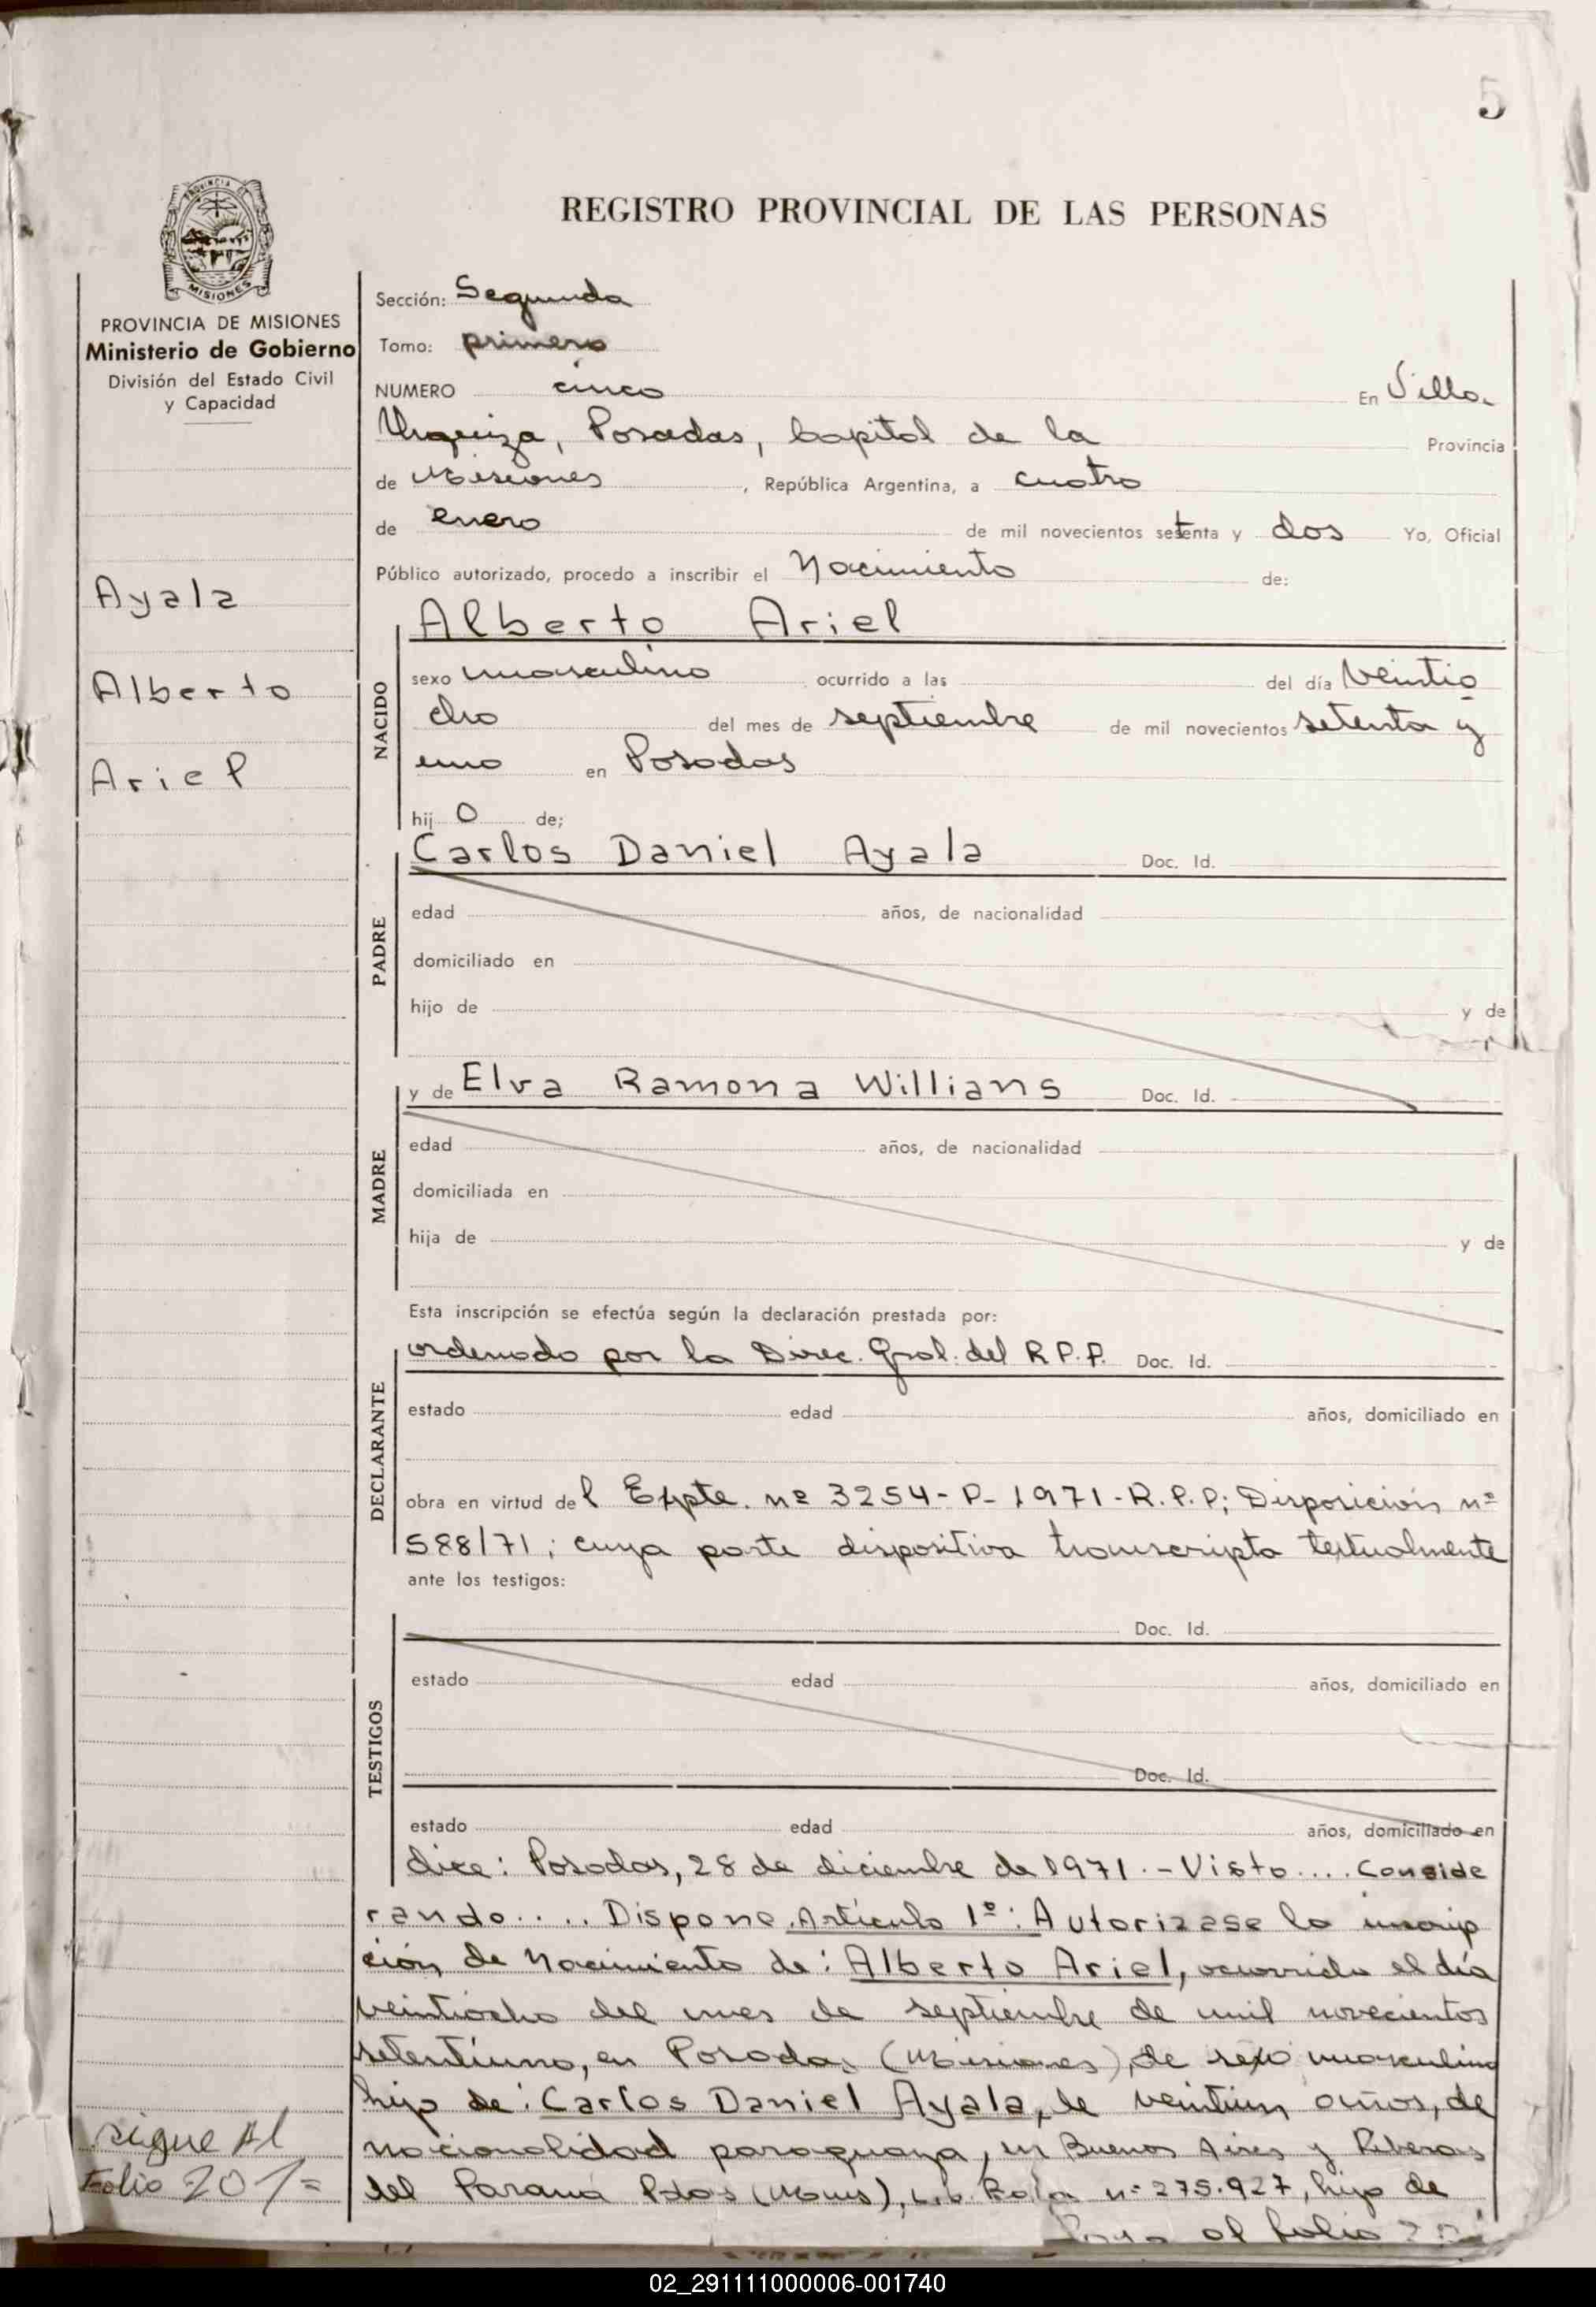 5
REGISTRO PROVINCIAL DE LAS PERSONAS
PROVINCIA DE
MISIONES
PROVINCIA DE MISIONES
Ministerio de Gobierno
División del Estado Civil
y Capacidad
Ayala
Alberto
Ariel
Sección: Segunda
Tomo: primero
NUMERO cinco En Villa
Urquiza, Posadas, Capital de la Provincia
de Misiones, República Argentina, a cuatro
de enero de mil novecientos setenta y dos Yo, Oficial
Público autorizado, procedo a inscribir el Nacimiento de:
NACIDO
Alberto Ariel
sexo masculino ocurrido a las del día veintio
cho del mes de septiembre de mil novecientos setenta y
uno en Posadas
hij o de;
PADRE
Carlos Daniel Ayala Doc. Id.
edad años, de nacionalidad
domiciliado en
hijo de y de
MADRE
y de Elva Ramona Willians Doc. Id.
edad años, de nacionalidad
domiciliada en
hija de y de
Esta inscripción se efectúa según la declaración prestada por:
DECLARANTE
ordenado por la Direc. Gral. del R.P.P. Doc. Id.
estado edad años, domiciliado en
obra en virtud del Expte. nº 3254-P-1971-R.P.P; Disposición nº
588/71; cuya parte dispositiva transcripta textualmente
ante los testigos:
TESTIGOS
Doc. Id.
estado edad años, domiciliado en
Doc. Id.
estado edad años, domiciliado en
dice: Posadas, 28 de diciembre de 1971.- Visto.... Conside
rando..... Dispone. Artículo 1º: Autorizase la inscrip
ción de Nacimiento de: Alberto Ariel, ocurrido el día
veintiocho del mes de septiembre de mil novecientos
setentiuno, en Posadas (Misiones), de sexo masculino
hijo de: Carlos Daniel Ayala, de veintiun años, de
nacionalidad paraguaya, en Buenos Aires y Riberas
del Paraná Pdas (Mnes), nº 275.927, hijo de
al folio
sigue Al
Folio 201=
02_291111000006-001740